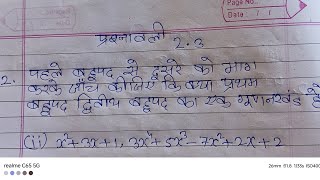 Page No.
Date
प्रश्नावली 2.3
2. पहले बहुपद से दूसरे को भाग
करके जाँच कीजिए कि क्या प्रथम
बहुपद द्वितीय बहुपद का एक गुणनखंड है
(ii) x²+3x+1, 3x⁴+5x³-7x²+2x+2
realme C65 5G
26mm f/1.8 1/33s ISO400